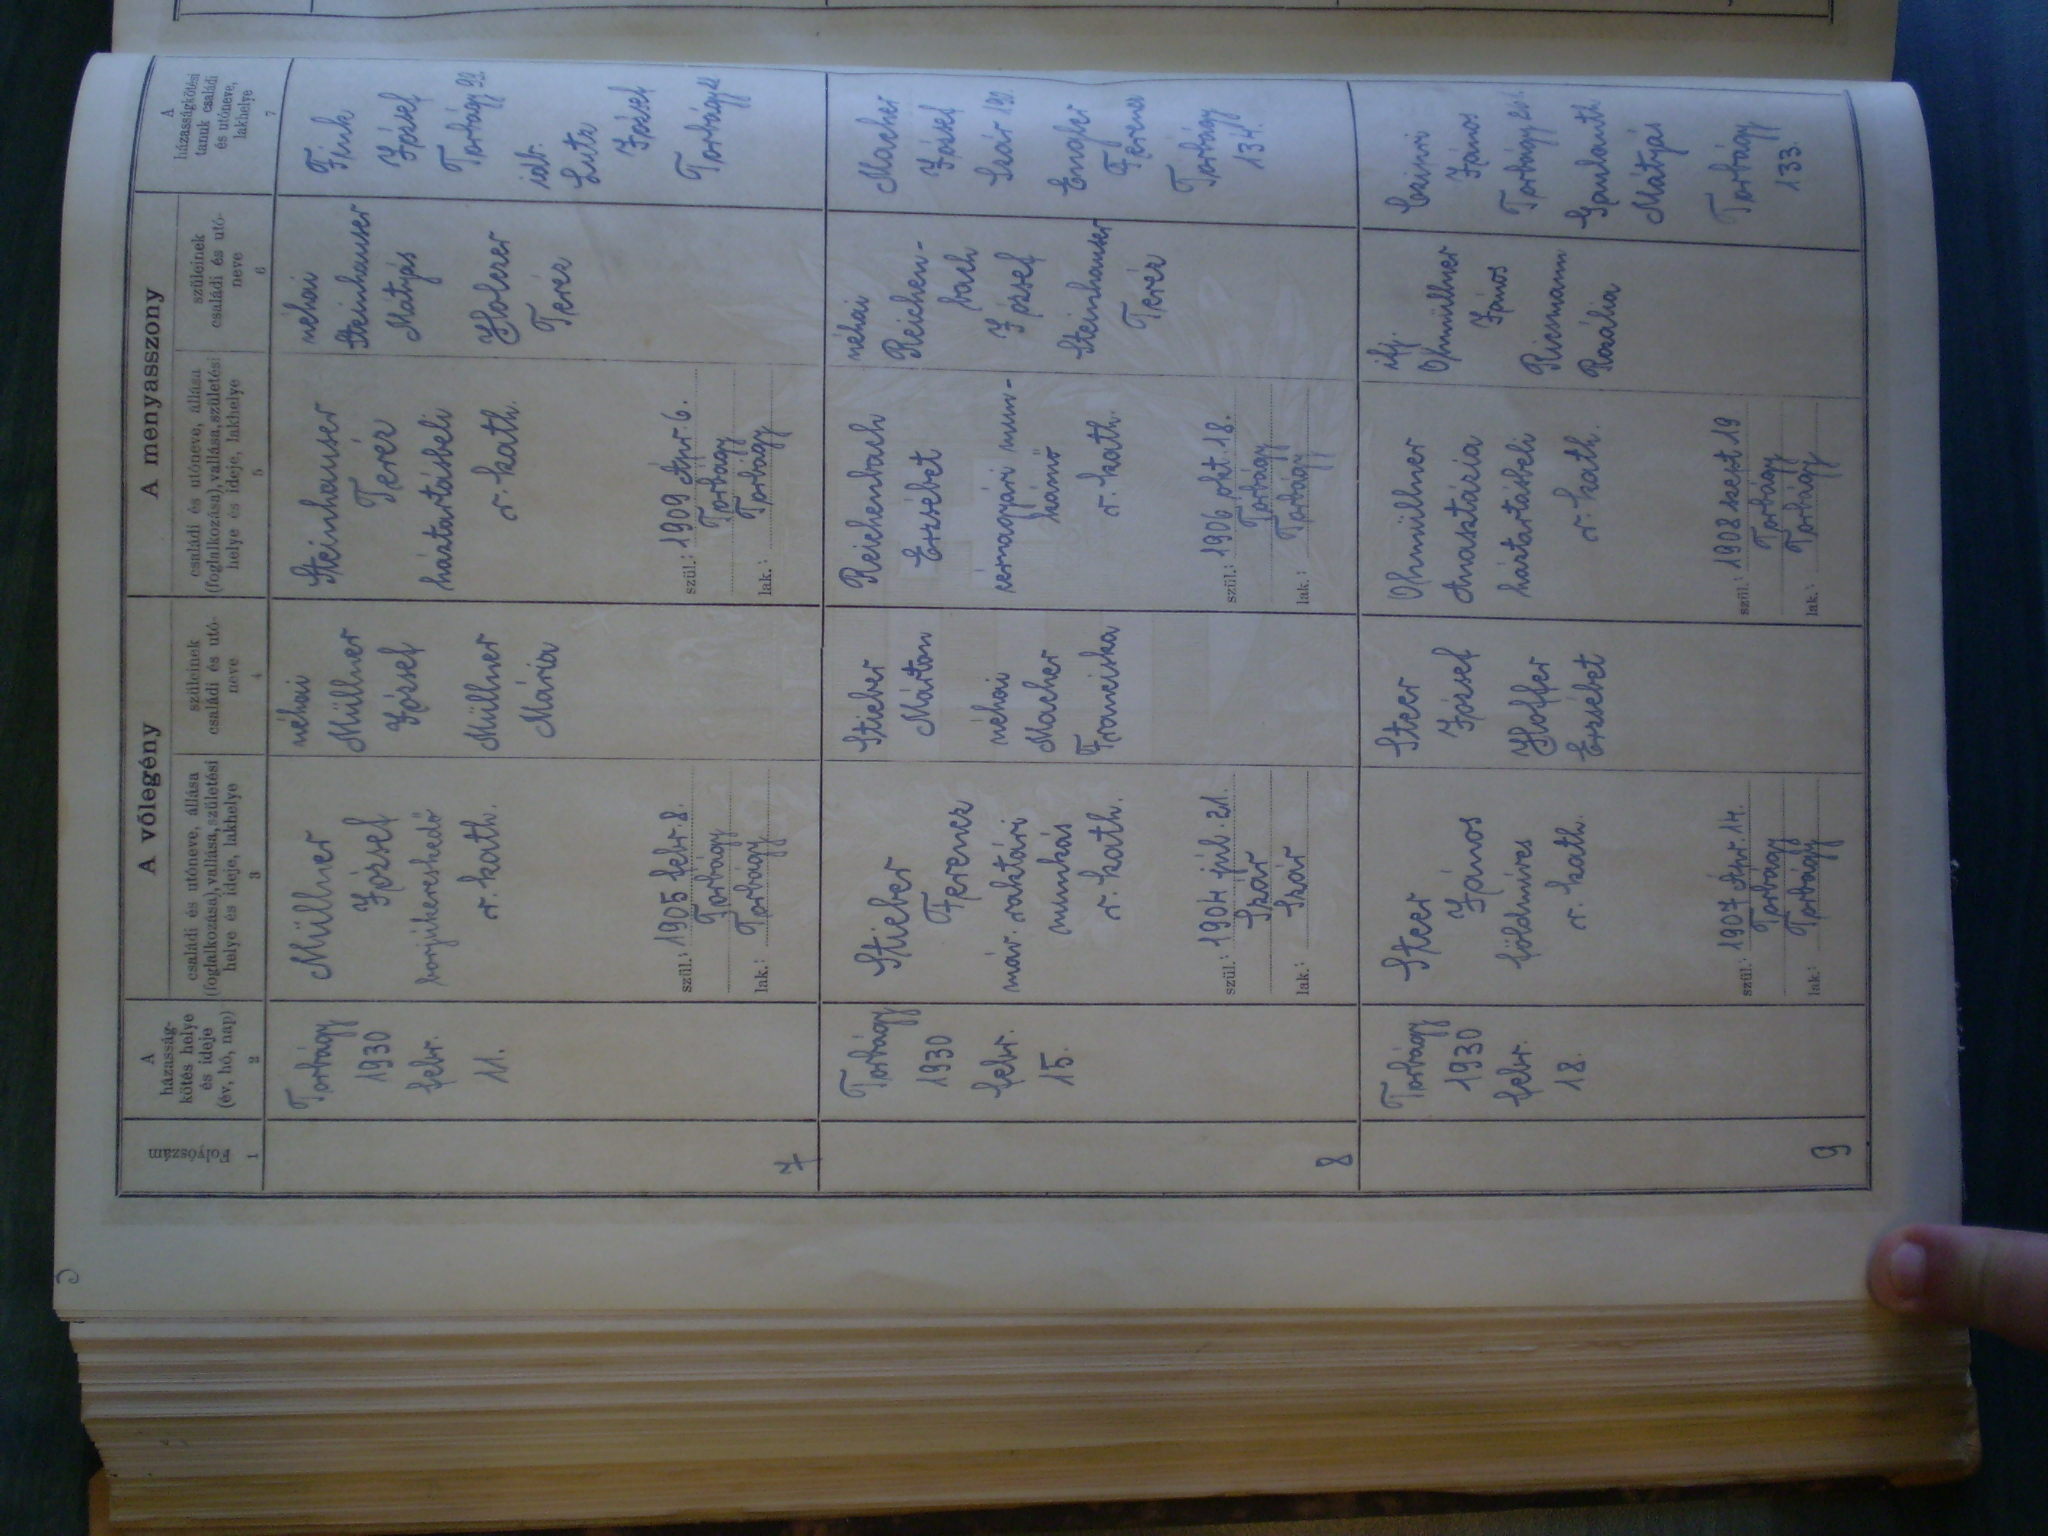 A vőlegény
A menyasszony
Folyószám
1
A
házasság-
kötés helye
és ideje
(év, hó, nap)
2
családi és utóneve, állása
(foglalkozása), vallása, születési
helye és ideje, lakhelye
3
szüleinek
családi és utó-
neve
4
családi és utóneve, állása
(foglalkozása), vallása, születési
helye és ideje, lakhelye
5
szüleinek
családi és utó-
neve
6
A
házasságkötési
tanuk családi
és utóneve,
lakhelye
7
7
Torbágy
1930
febr.
11.
Müllner
József
borjúkereskedő
r. kath.
szül.: 1905 febr. 8.
Torbágy
lak.: Torbágy
néhai
Müllner
József
Müllner
Mária
Steinhauser
Teréz
háztartásbeli
r. kath.
szül.: 1909 Apr. 6.
Torbágy
lak.: Torbágy
néhai
Steinhauser
Mátyás
Holczer
Teréz
Fink
József
Torbágy
idb.
Lutz
József
Torbágy
8
Torbágy
1930
febr.
15.
Stieber
Ferencz
máv. raktári
munkás
r. kath.
szül.: 1904 júl. 21.
Szár
lak.: Szár
Stieber
Márton
néhai
Macher
Franciska
Reichenbach
Erzsébet
mun-
kásnő
r. kath.
szül.: 1906 okt. 18.
Torbágy
lak.: Torbágy
néhai
Reichen-
bach
József
Steinhauser
Teréz
Macher
József
Szár 190.
Engler
Ferencz
Torbágy
134.
9
Torbágy
1930
febr.
18.
Steer
János
földmíves
r. kath.
szül.: 1907 Apr. 14.
Torbágy
lak.: Torbágy
Steer
József
Hoffer
Erzsébet
Ohmüllner
Anasztázia
háztartásbeli
r. kath.
szül.: 1908 szept 19
Torbágy
lak.: Torbágy
ifj.
Ohmüllner
János
Ricsmann
Rozália
János
Torbágy
Mátyás
Torbágy
133.